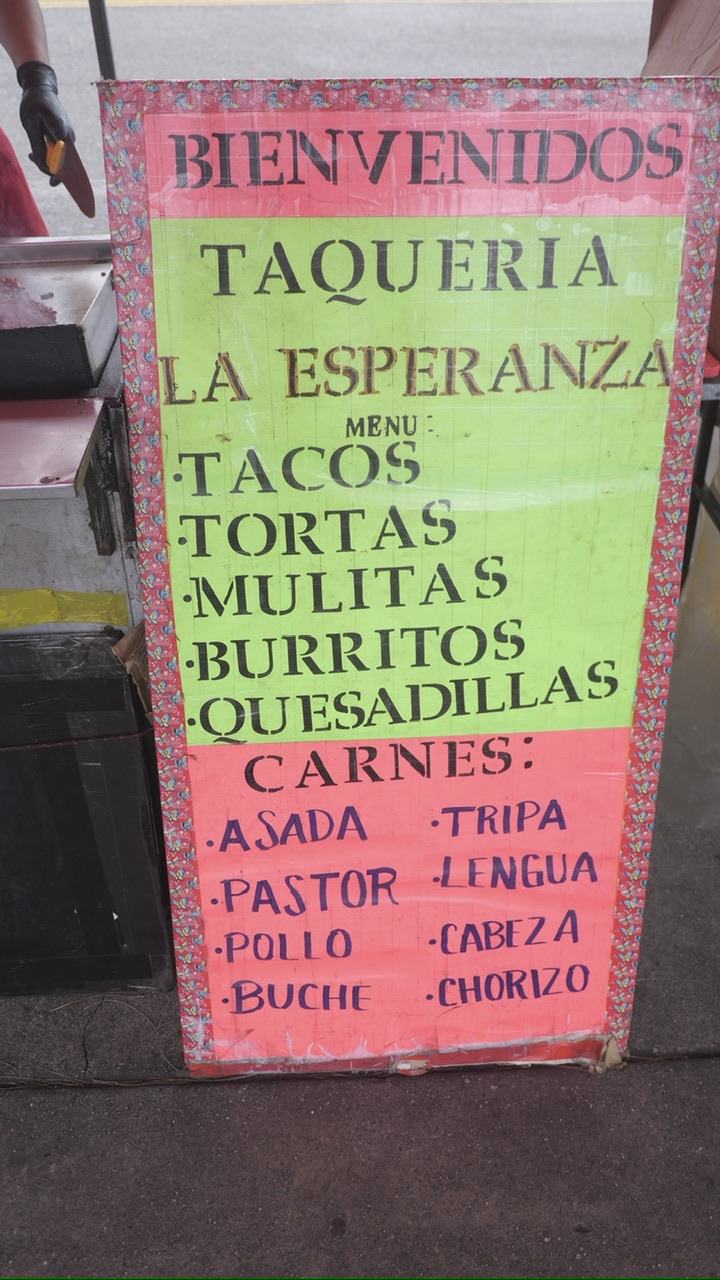 BIENVENIDOS
TAQUERIA
LA ESPERANZA
MENU:
·TACOS
·TORTAS
·MULITAS
·BURRITOS
·QUESADILLAS
CARNES:
·ASADA ·TRIPA
·PASTOR ·LENGUA
·POLLO ·CABEZA
·BUCHE ·CHORIZO